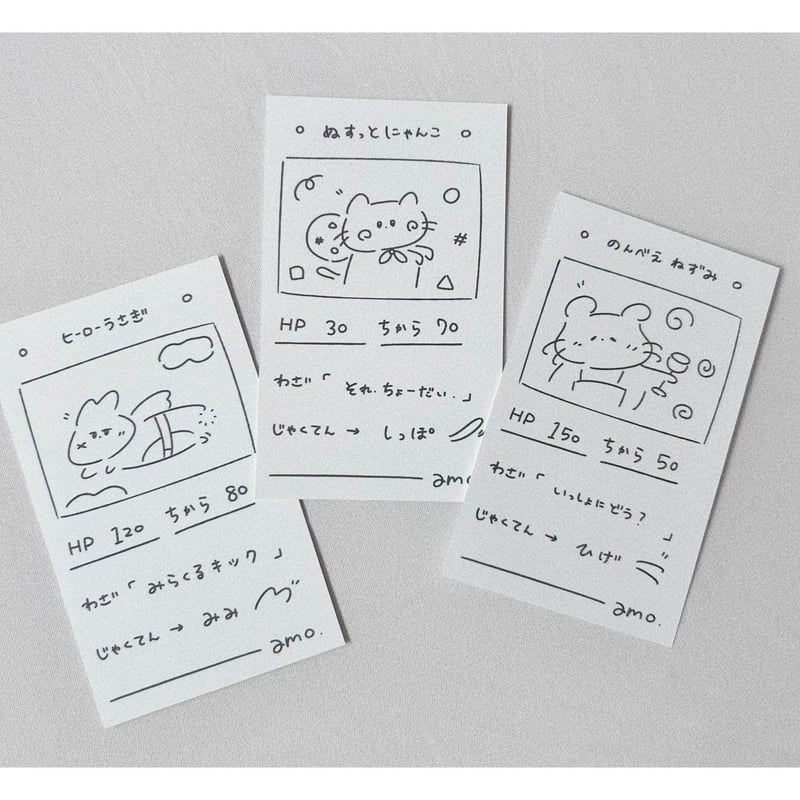 ヒーローうさぎ
HP 120 ちから 80
わざ「みらくるキック」
じゃくてん → みみ
amo.
ぬすっとにゃんこ
HP 30 ちから 70
わざ「それ.ちょーだい.」
じゃくてん → しっぽ
amo
のんべえ ねずみ
HP 150 ちから 50
わざ「いっしょにどう?」
じゃくてん → ひげ
amo.